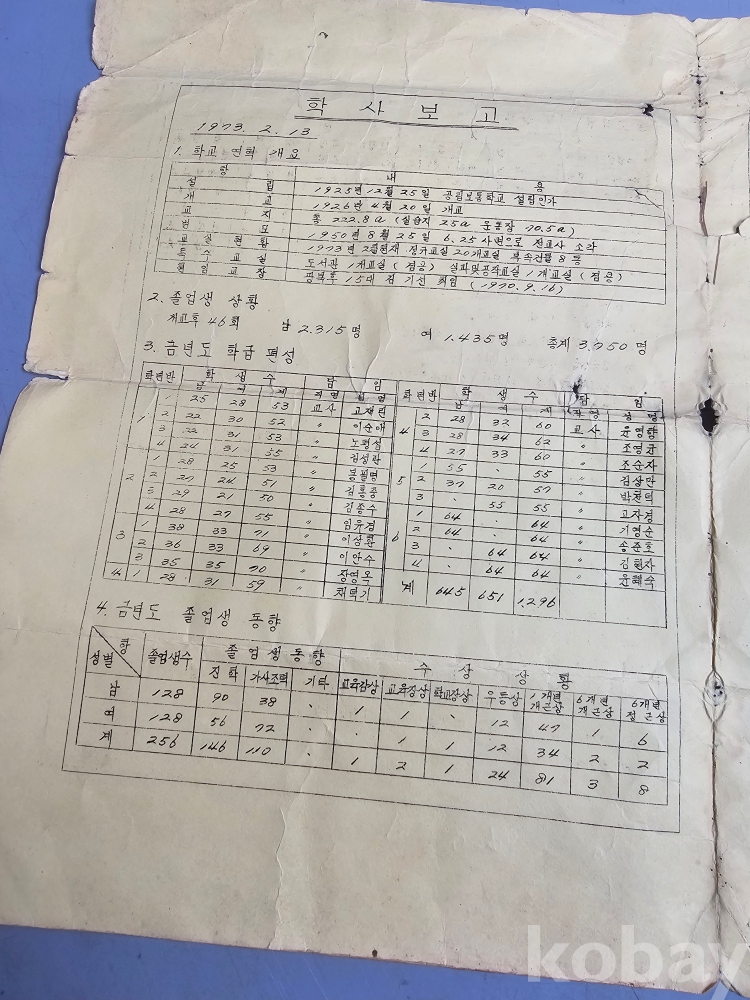 학사보고
1973. 2. 13
1. 학교 연혁 개요
항 내 용
설립 1925년 12월 25일 공립보통학교 설립인가
개교 1926년 4월 20일 개교
교지 총 222.8a (실습지 25a 운동장 70.5a)
1950년 8월 25일 6.25 사변으로 전교사 소각
교실현황 1973년 2월현재 정규교실 20개교실 부속건물 8동
특수교실 도서관 1개교실 (겸용) 실과및공작교실 1개교실 (겸용)
교장 광복후 15대 김기선 취임 (1970. 9. 16)
2. 졸업생 상황
개교후 46회 남 2.315명 여 1.435명 총계 3.750명
3. 금년도 학급 편성
학년 반 학생수 남 여 계 담임 직명 성명
1 1 25 28 53 교사 고재린
2 22 30 52 〃 이순애
3 22 31 53 〃 노평성
4 24 31 55 〃 김성락
2 1 28 25 53 〃
2 27 24 51 〃
3 29 21 50 〃 김종수
4 28 27 55 〃 임유경
3 1 38 33 71 〃 이상훈
2 36 33 69 〃 이안수
3 35 35 70 〃 장영옥
4 1 28 31 59 〃 채덕기
학년 반 학생수 남 여 계 담임 직명 성명
4 2 28 32 60 교사
3 28 34 62 〃 조영균
4 27 33 60 〃 조순자
5 1 55 · 55 〃 김상만
2 37 20 57 〃 박천덕
3 · 55 55 〃 고자경
6 1 64 · 64 〃 기영순
2 64 · 64 〃 송준호
3 · 64 64 〃 김현자
4 · 64 64 〃 윤혜숙
계 645 651 1,296
4. 금년도 졸업생 동향
항 성별 졸업생수 졸업생동향 수상상황
진학 가사조력 기타 교육감상 교육장상 학교장상 우등상 1개년개근상 6개년개근상 6개년정근상
남 128 90 38 · 1 1 · 12 47 1 6
여 128 56 72 · · 1 1 12 34 2 2
계 256 146 110 · 1 2 1 24 81 3 8
kobay